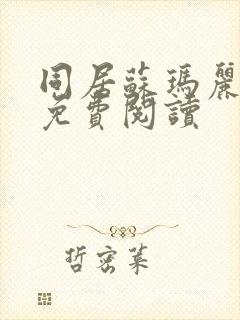 同居蘇瑪麗
免費閱讀
哲密萊